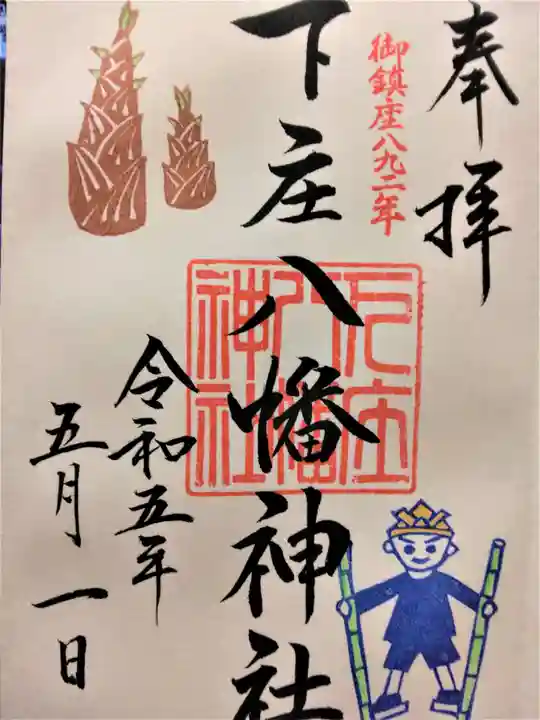 奉拝
御鎮座八九二年
下庄八幡神社
下庄
八幡
神社
令和五年
五月一日